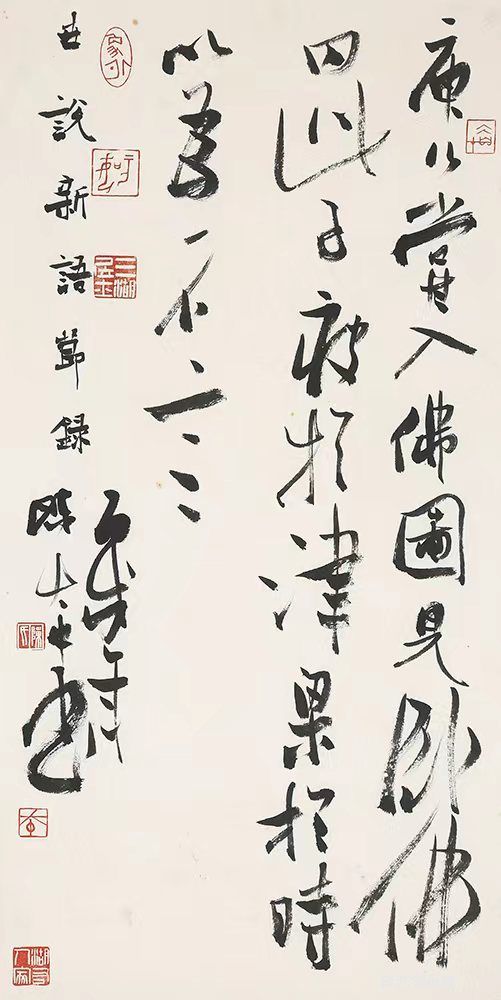 庾公嘗入佛圖見臥佛
曰此子疲於津梁於時
以為名言
世說新語節錄
陳大中